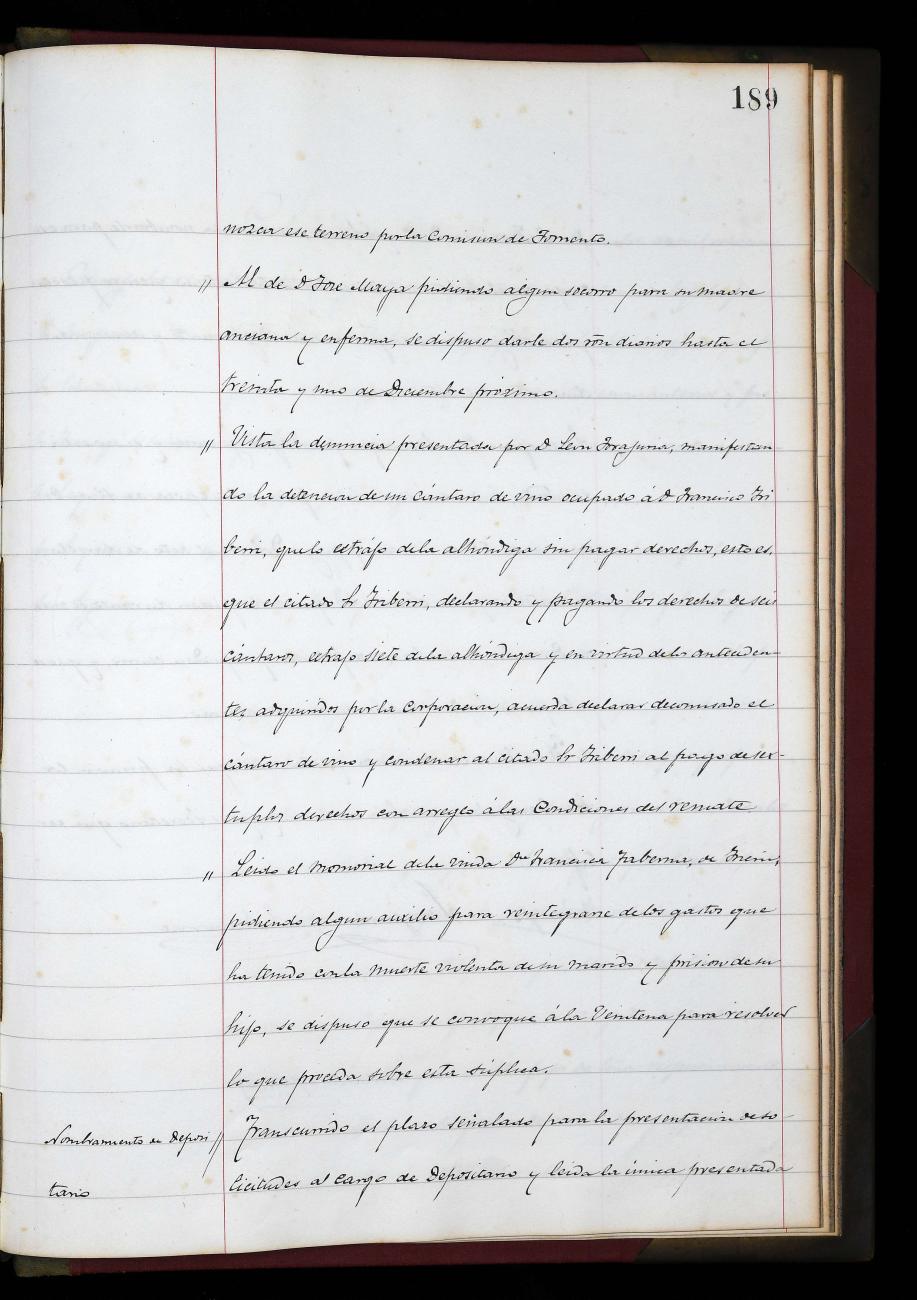 189
nozca ese terreno por la Comision de Fomento.
" Al de D José Maya pidiendo algun socorro para su madre
anciana y enferma, se dispuso darle dos rón diarios hasta el
treinta y uno de Diciembre próximo.
" Vista la denuncia presentada por D Leon manifestan
do la detencion de un cántaro de vino ocupado á D Francisco Iri
berri, que lo estrájo de la alhóndiga sin pagar derechos, esto es,
que el citado Sr Iriberri, declarando y pagando los derechos de seis
cántaros, estrajo siete de la alhóndiga y en virtud de los anteceden-
tes adquiridos por la Corporacion, acuerda declarar decomisado el
cántaro de vino y condenar al citado Sr Iriberri al pago de sex-
tuplos derechos con arreglo á las Condiciones del remate
" Leido el memorial de la viuda Da Francisca Taberna, de
pidiendo algun auxilio para reintegrarse de los gastos que
ha tenido con la muerte violenta de su marido y prision de su
hijo, se dispuso que se convoque á la Veintena para resolver
lo que proceda sobre esta súplica.
Nombramiento de Deposi
tario
" Transcurrido el plazo señalado para la presentacion de so
licitudes al cargo de Depositario y leida la única presentada